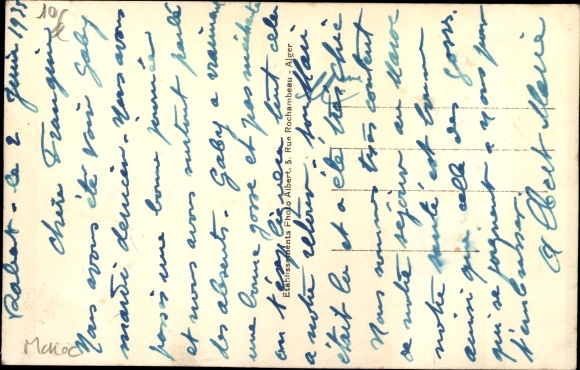 Rabat - le 2 Juin 1935
Chère Françoise
Nous avons été voir Gaby
mardi dernier - Nous avons
passé une bonne journée
et nous avons surtout parlé
des absents. Gaby a vraiment
une bonne gosse et pas méchante
on t'expliquera tout cela
a notre retour - son Mari
était là et a été très chic
Nous sommes très content
de notre séjour au Maroc
notre santé est bonne
ainsi que celle des Goss.
qui se joignent a nous pour
t'embrasser
Albert Marie
Etablissements Photo Albert. 5. Rue Rochambeau - Alger
Maroc